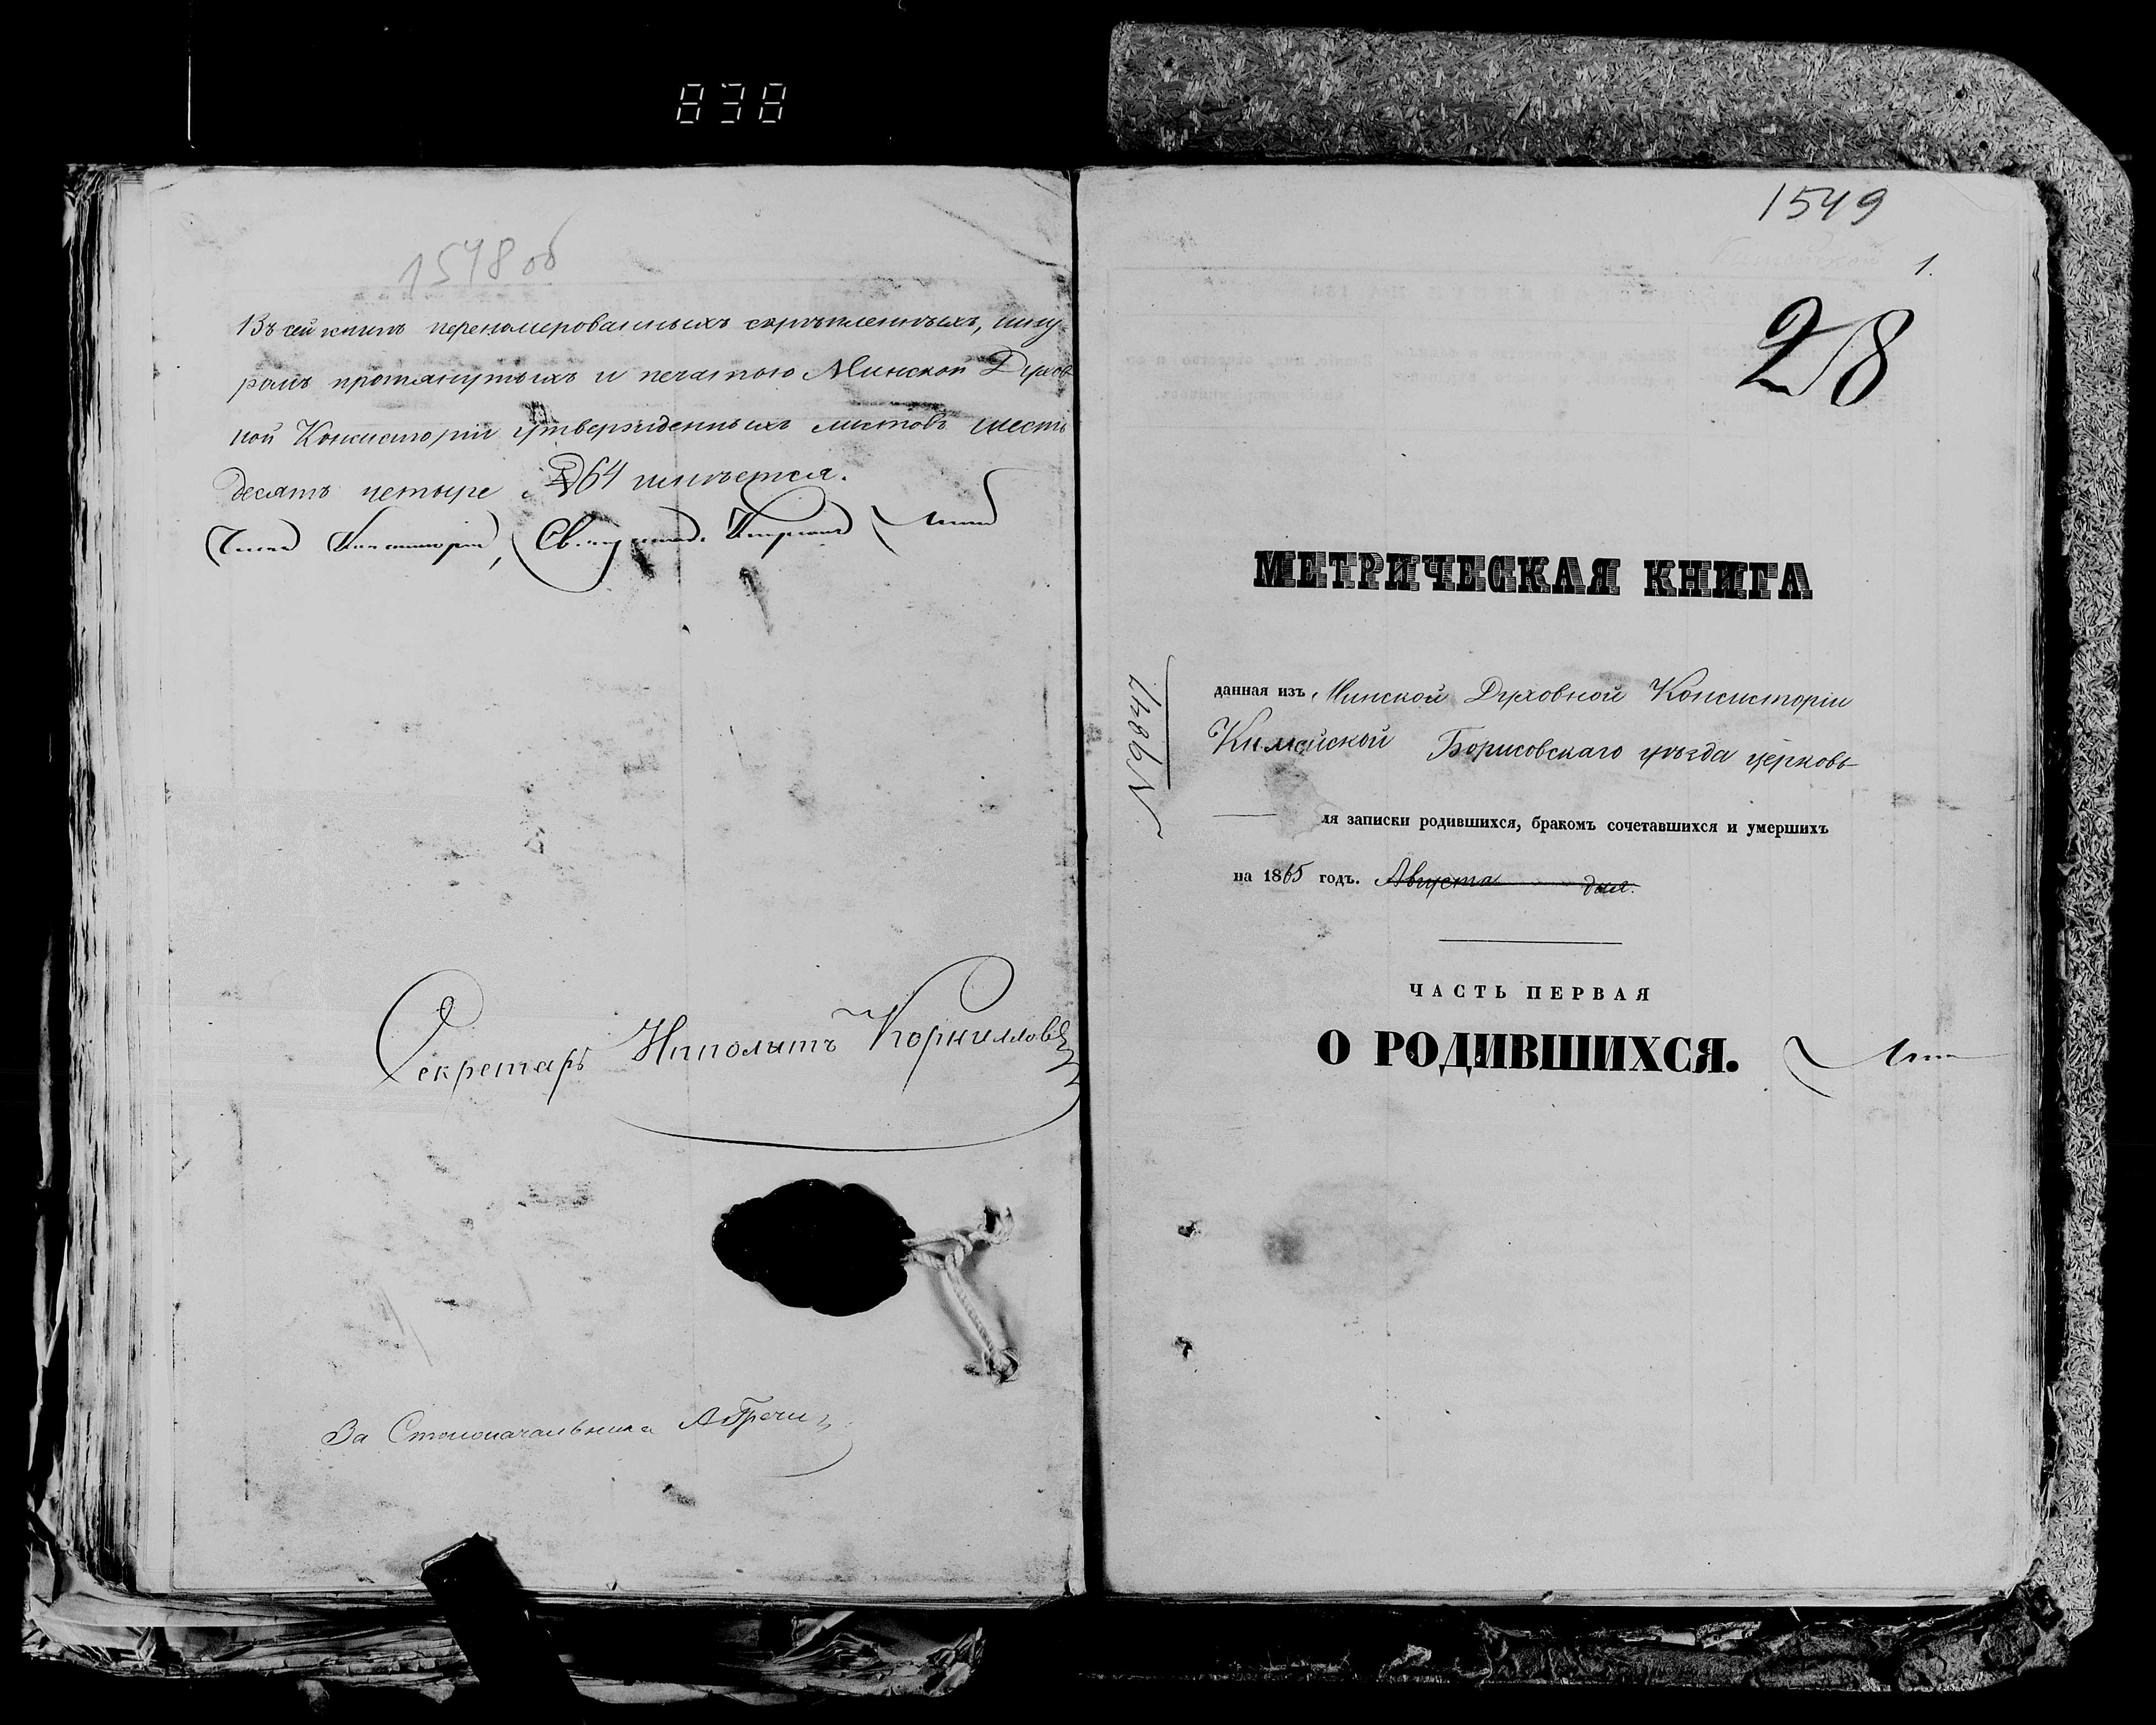 838
1548 об
Въ сей книгѣ перенумерованныхъ скрѣпленныхъ, шну
ромъ протянутыхъ и печатью Минской Духов
ной Консисторіи утвержденныхъ листовъ шесть
десятъ четыре 64 имѣется.
Членъ Консисторіи, Священникъ
Секретарь Ипполитъ Корниллов
За Столоначальника
1549
1.
28
МЕТРИЧЕСКАЯ КНИГА
№ 9847
данная изъ Минской Духовной Консисторіи
Кимейской Борисовскаго уѣзда церковь
ля записки родившихся, бракомъ сочетавшихся и умершихъ
на 1865 годъ. Августа дня.
ЧАСТЬ ПЕРВАЯ
О РОДИВШИХСЯ.